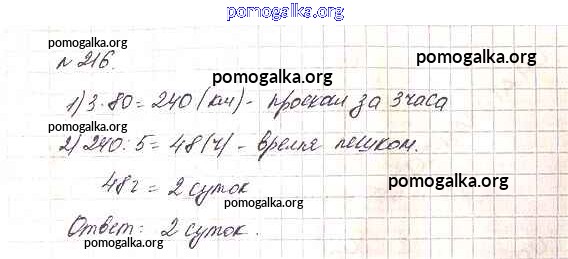 pomogalka.org
pomogalka.org pomogalka.org
№ 216.
pomogalka.org
1) 3·80 = 240 (км) - проехал за 3 часа
pomogalka.org
2) 240 : 5 = 48 (ч) - время пешком.
48ч = 2 суток pomogalka.org
Ответ: 2 суток.
pomogalka.org pomogalka.org